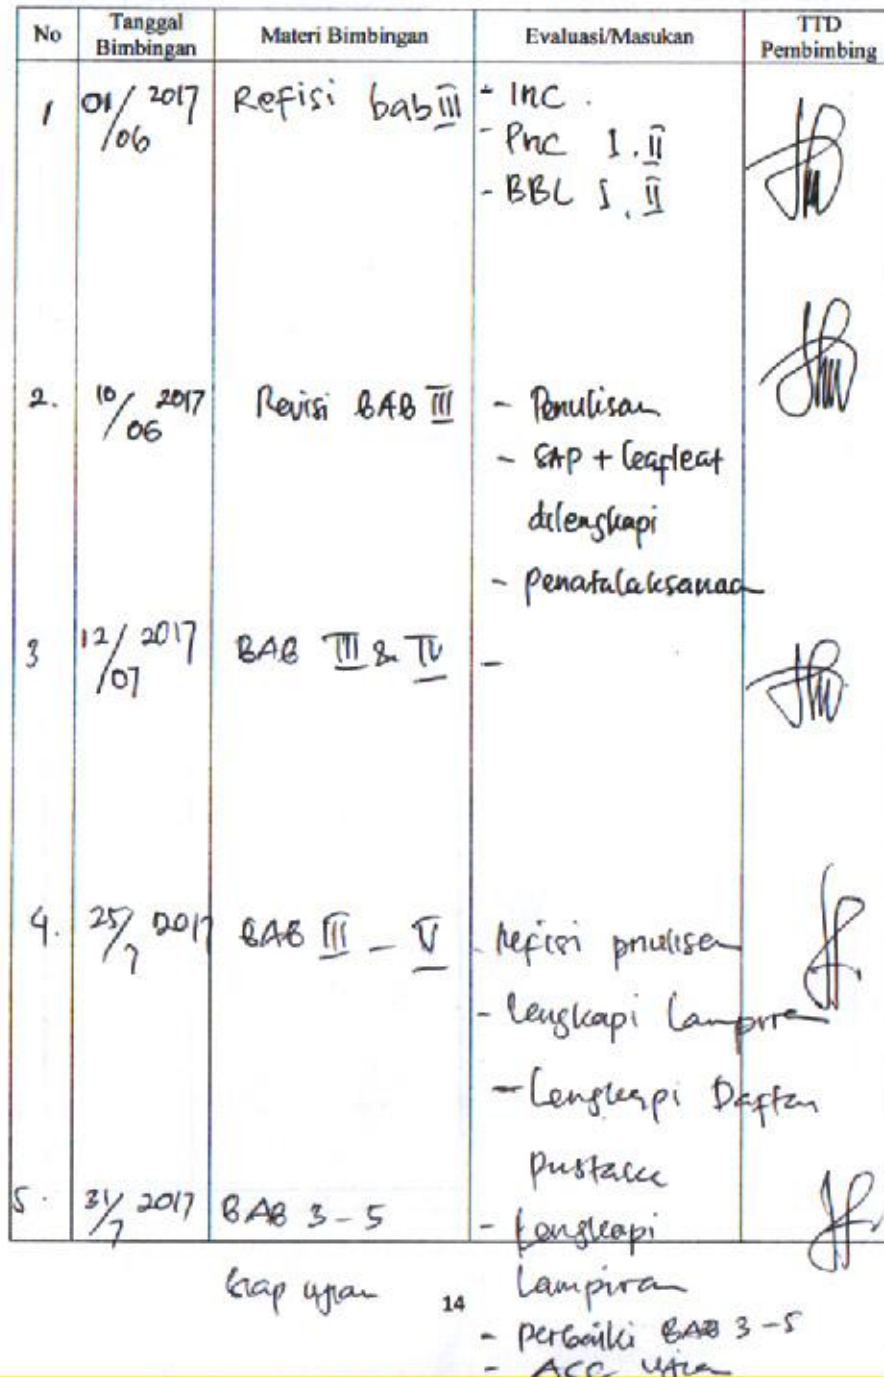 No Tanggal Bimbingan Materi Bimbingan Evaluasi/Masukan TTD Pembimbing
1 01/06 2017 Refisi bab III - INC.
- PNC I. II
- BBL I. II
2. 10/06 2017 Revisi BAB III - Penulisan
- SAP + leafleat
dilengkapi
- Penatalaksanaa
3 12/07 2017 BAB III & IV -
4. 25/7 2017 BAB III - V - Refisi pnulisan
- lengkapi Lampiran
- Lengkapi Daftar
pustaka
5. 31/7 2017 BAB 3-5 - Lengkapi
siap ujian Lampiran
14
- perbaiki BAB 3-5
- ACC ujian